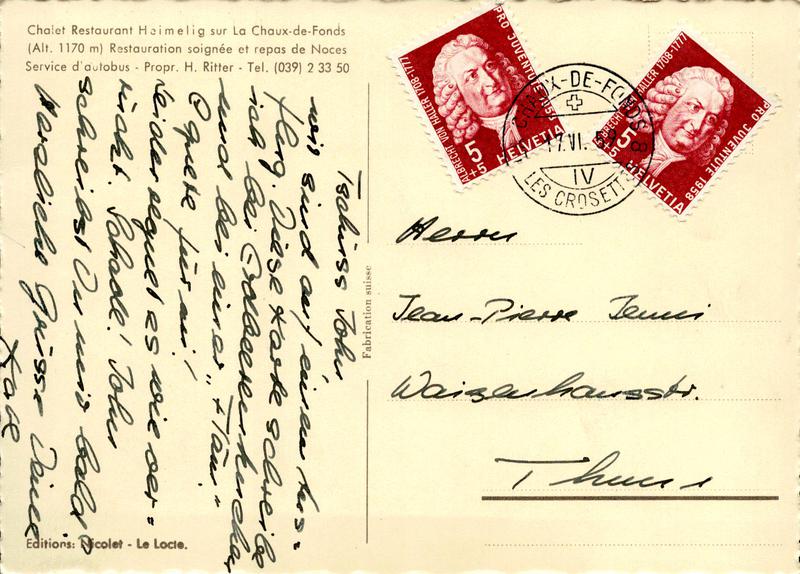 Chalet Restaurant Heimelig sur La Chaux-de-Fonds
(Alt. 1170 m) Restauration soignée et repas de Noces
Service d'autobus - Propr. H. Ritter - Tel. (039) 2 33 50
Tschüss John
wir sind auf einem Aus=
flug. Diese Karte schreibe
ich bei Erdbeerenkuchen
und bei einer "
@ für mi!
Leider regnet es wie ver=
rückt. Schade! John
schreibst Du mir bald?
Herzliche Grüsse Deine
Editions: Nicolet - Le Locle.
Fabrication suisse
PRO JUVENTUTE 1958
ALBRECHT VON HALLER 1708-1777
5+5
HELVETIA
PRO JUVENTUTE 1958
ALBRECHT VON HALLER 1708-1777
5+5
HELVETIA
CHAUX-DE-FONDS 8
17.VI.59
IV
LES CROSETTES
Herrn
Jean-Pierre Jenni
Waizenhausstr.
Thun